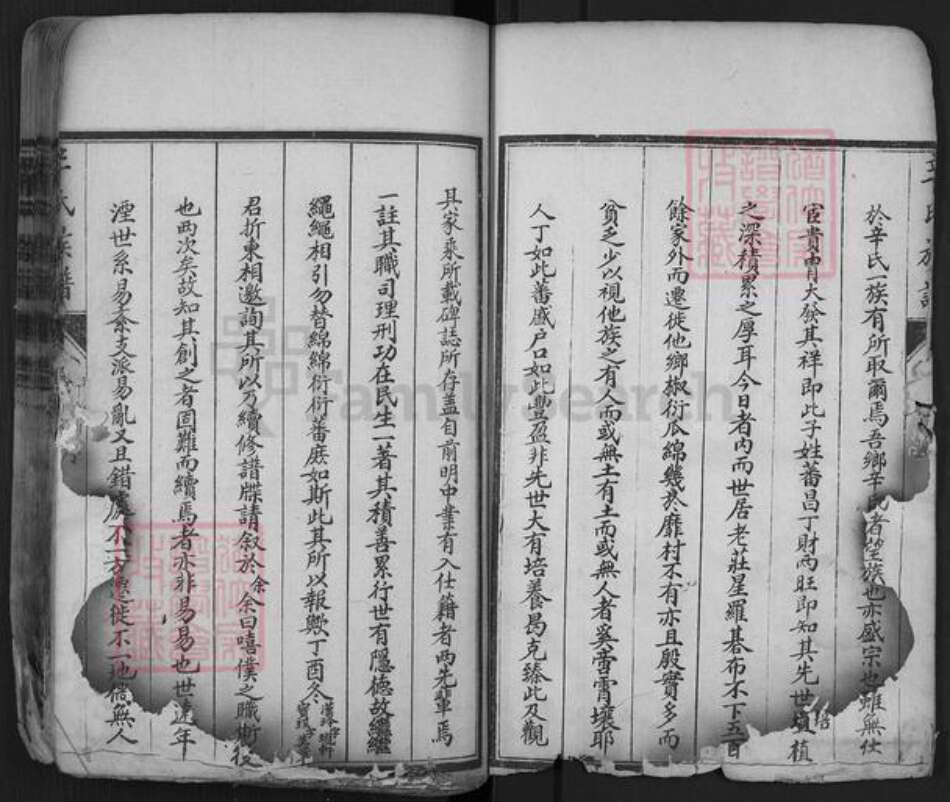 於辛氏一族有所取爾焉吾鄉辛氏者望族也亦盛宗也雖無仕
宦貴胄大發其祥即此子姓蕃昌丁財兩旺即知其先世培植
之深積累之厚耳今日者內而世居老莊星羅碁布不下五百
餘家外而遷徙他鄉椒衍瓜綿幾於靡村不有亦且殷實多而
貧乏少以視他族之有人而或無土有土而或無人者奚啻霄壤耶
人丁如此蕃盛户口如此豐盈非先世大有培養曷克臻此及觀
其家乘所載碑誌所存蓋自前明中葉有入仕籍者兩先輩焉
一註其職司理刑功在民生一著其積善累行世有隱德故繼繼
繩繩相引勿替綿綿衍衍蕃庶如斯此其所以報歟丁酉冬
君折柬相邀詢其所以乃續修譜牒請叙於余余曰嘻僕之職斯役
也兩次矣故知其創之者固難而續焉者亦非易易也世遠年
湮世系易紊支派易亂又且錯處不一方遷徙不一地儻無人
辛氏族譜
FamilySearch